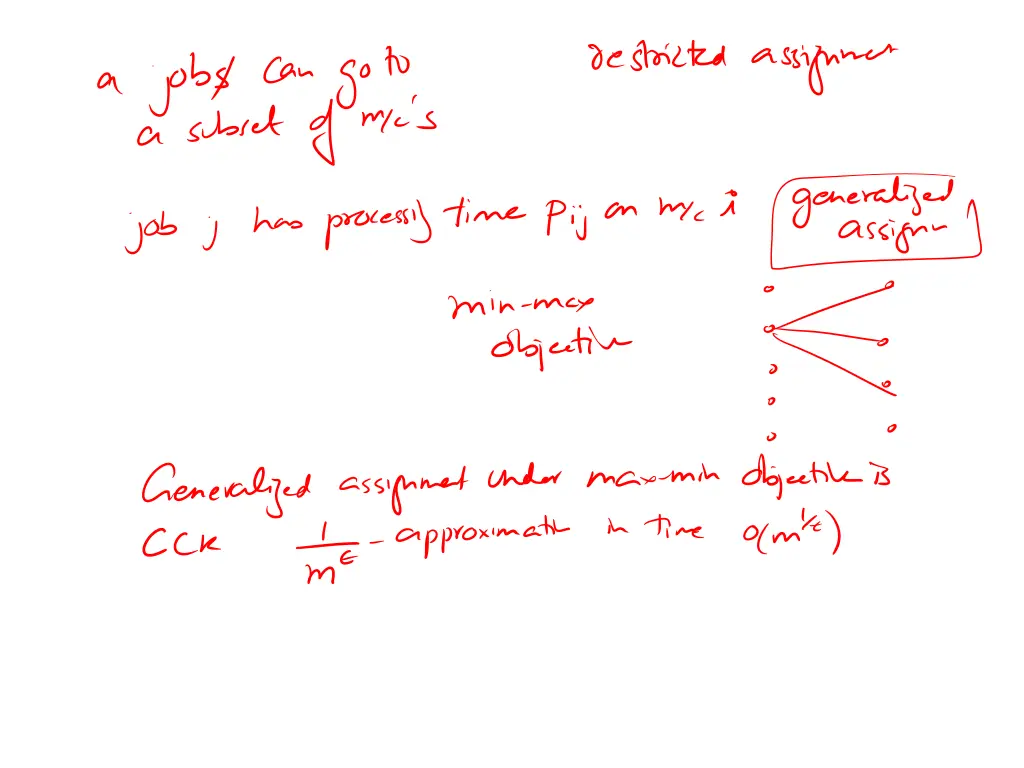 a jobs can go to
a subset of m/c's
restricted assignment
job j has processing time Pij on m/c i
generalized
assignm
min-max
objective
Generalized assignment under max-min objective is
CCK 1/m^ε - approximatn in time O(m^1/ε)